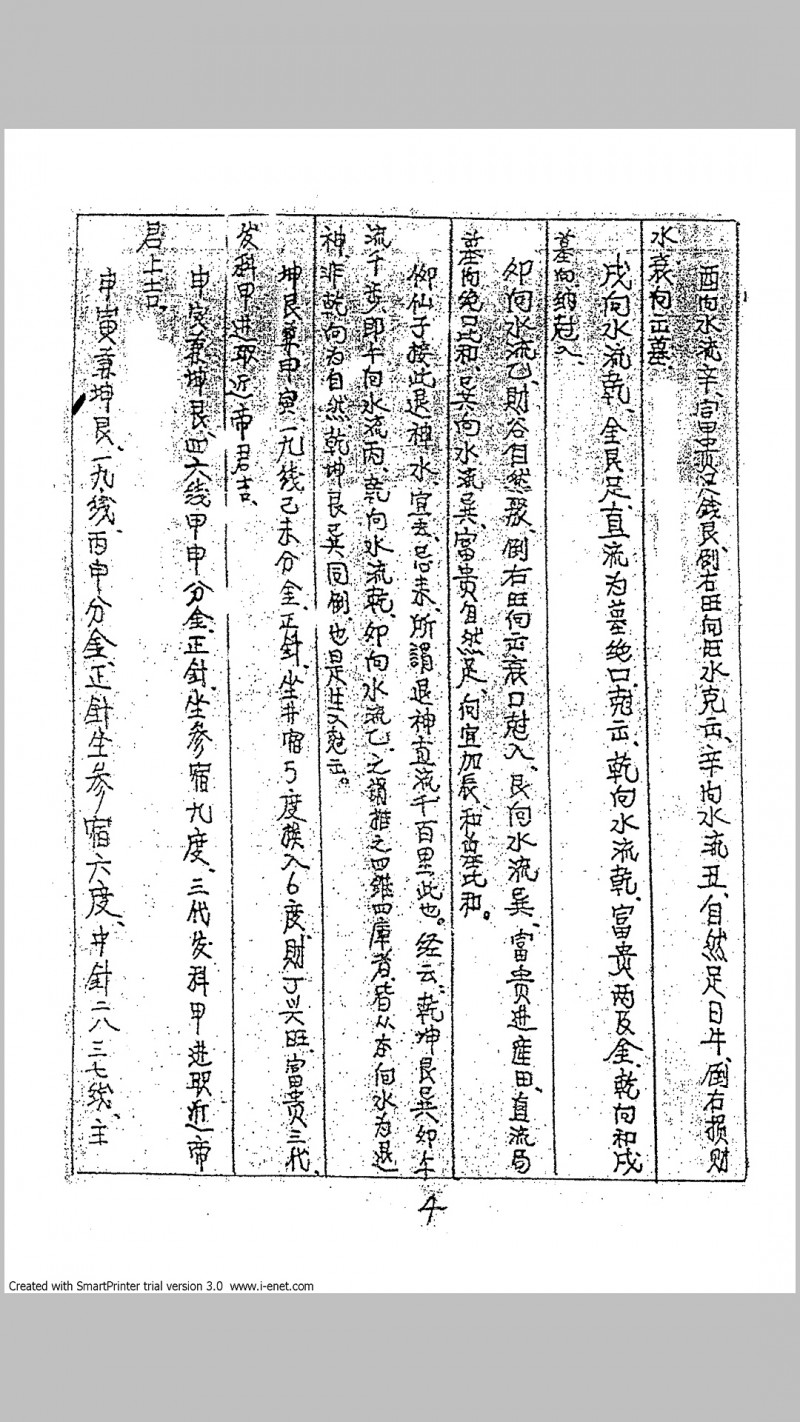 酉向水流辛、富贵足钱良、倒右旺向旺水克云、辛向水流丑、自然足日牛、倒右损财
水、衰向云墓、
戌向水流乾、金民足、直流为墓绝口、尅云、乾向水流乾、富贵两及全、乾向和戌
墓向纳尅入、
卯向水流乙、財谷自然發、倒右旺向云衰口尅入、艮向水流巽、富贵进産田、直流局
墓向绝比和、巽向水流巽、富贵自然足、向宜加辰、和墓比和。
御仙子接此退神水、宜去、忌来、所謂退神直流千百里此也。经云、乾坤艮巽卯午
流千步、即午向水流丙、乾向水流乾、卯向水流乙、之類推之四維四庫者、皆从本向水为退
神、非乾向为自然乾坤艮巽同倒、也是生入尅云。
坤艮兼申寅一九线己未分金、正針、坐井宿5度挨入6度、財丁兴旺、富贵三代、
发科甲、进取近帝君吉、
申寅兼坤艮、四六线甲申分金、正針、坐参宿九度、三代发科甲进取近帝
君上吉、
申寅兼坤艮、一九线、丙申分金、正針坐参宿六度、中針二八三七线、主
4
Created with SmartPrinter trial version 3.0 www.i-enet.com